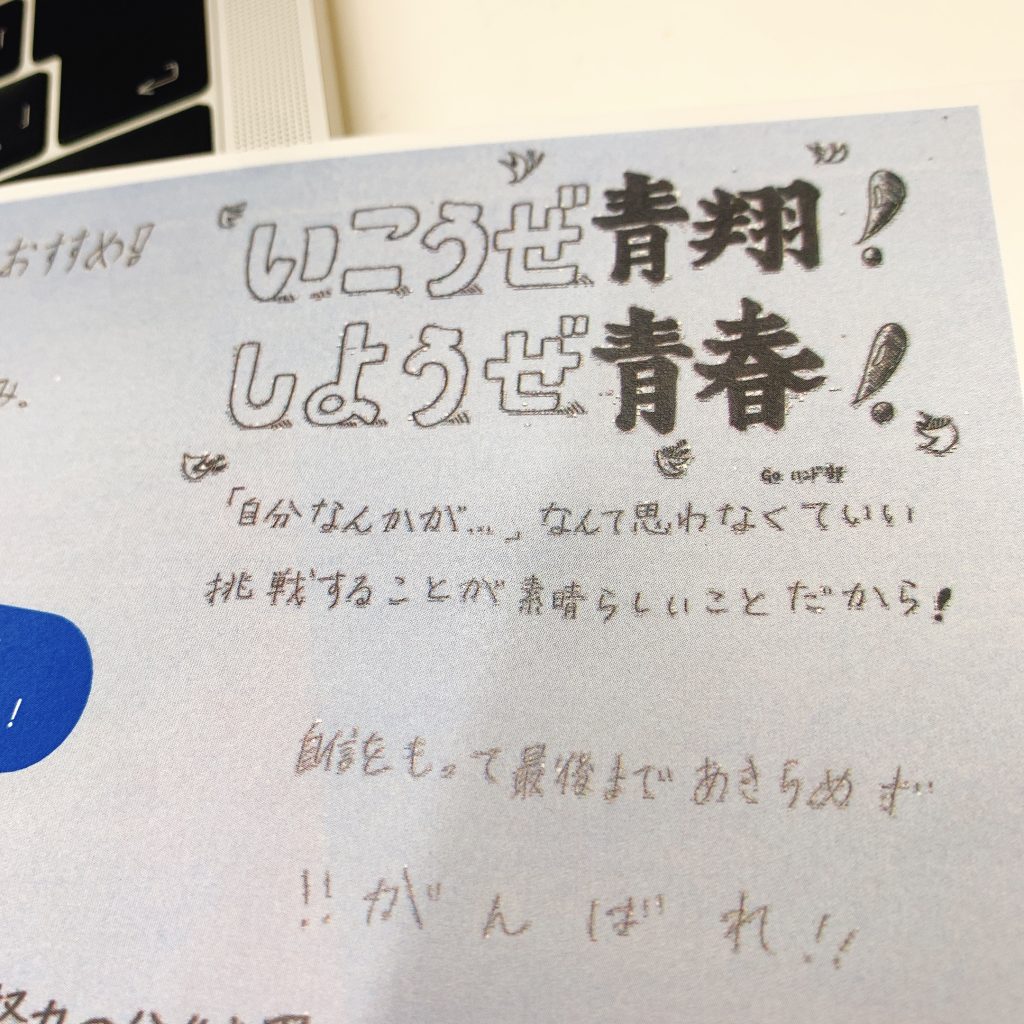 おすすめ!!
いこうぜ青翔!
しようぜ青春!
み。
「自分なんかが…」なんて思わなくていい
挑戦することが素晴らしいことだから!
!
自信をもって最後まであきらめず
!!がんばれ!!